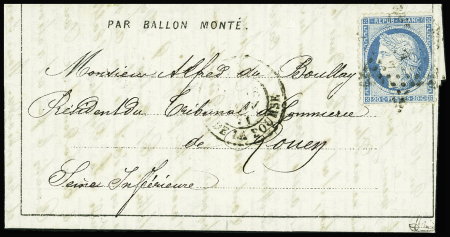 PAR BALLON MONTÉ.
REPUB. FRANC.
Monsieur Alfred du Boullay
Président du Tribunal de Commerce
LA BOURSE
de Rouen
Seine Inférieure